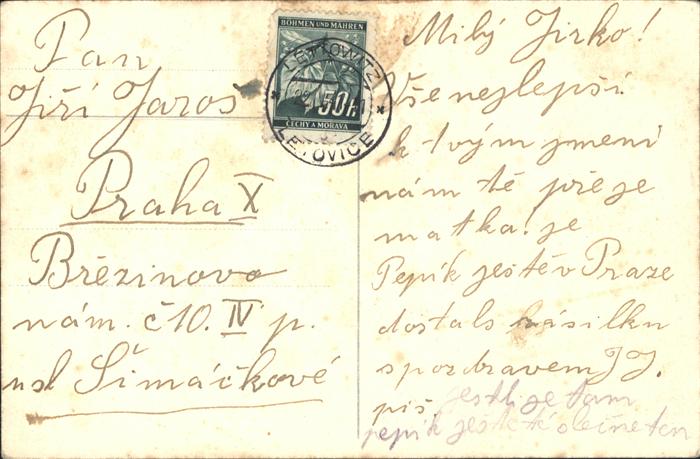 Pan
Jiří Jaroš
Praha X
Březinovo
nám. č10. IV p.
Šimáčkové
BÖHMEN UND MÄHREN
50h.
ČECHY A MORAVA
LETTOWITZ
LETOVICE
Milý Jirko!
Vše nejlepší
k tvým jmeni
nám tě přeje
matka. je
Pepík ještě v Praze
dostals zásilku
s pozdravem J J.
piš. jestli je tam
pepík ještě